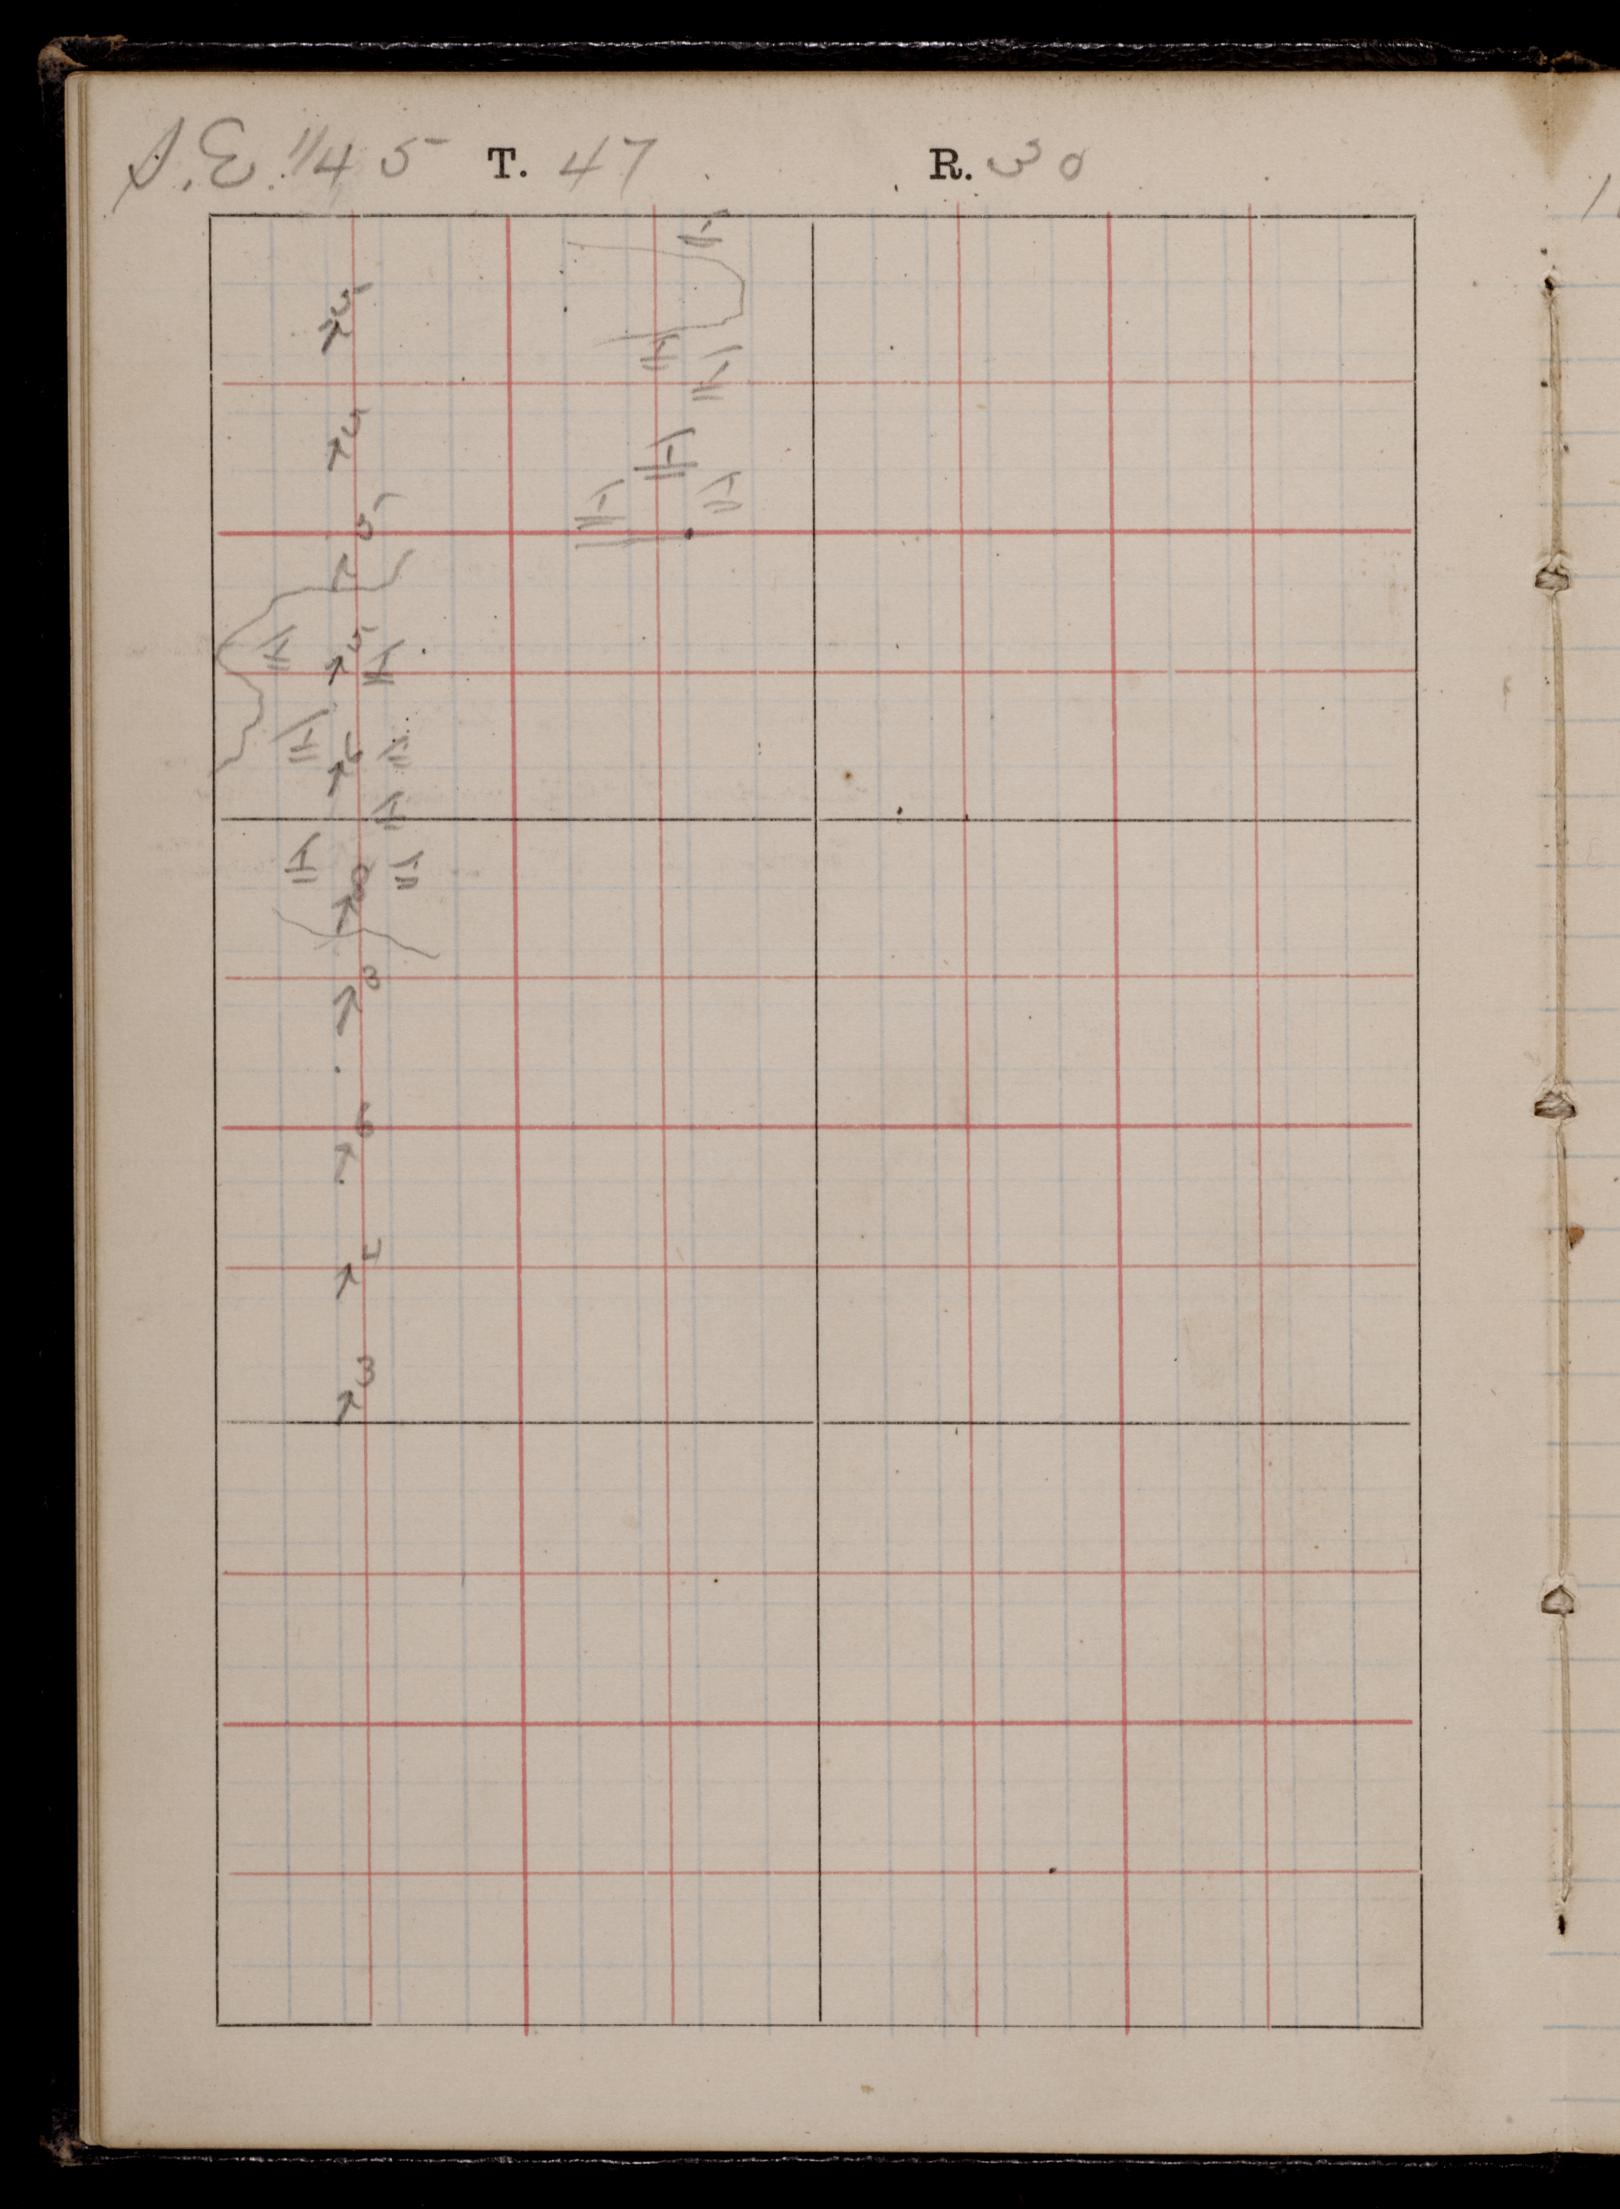 S.E. 1/4 5 T. 47 R. 30
5
5
5
5
8
3
6
3